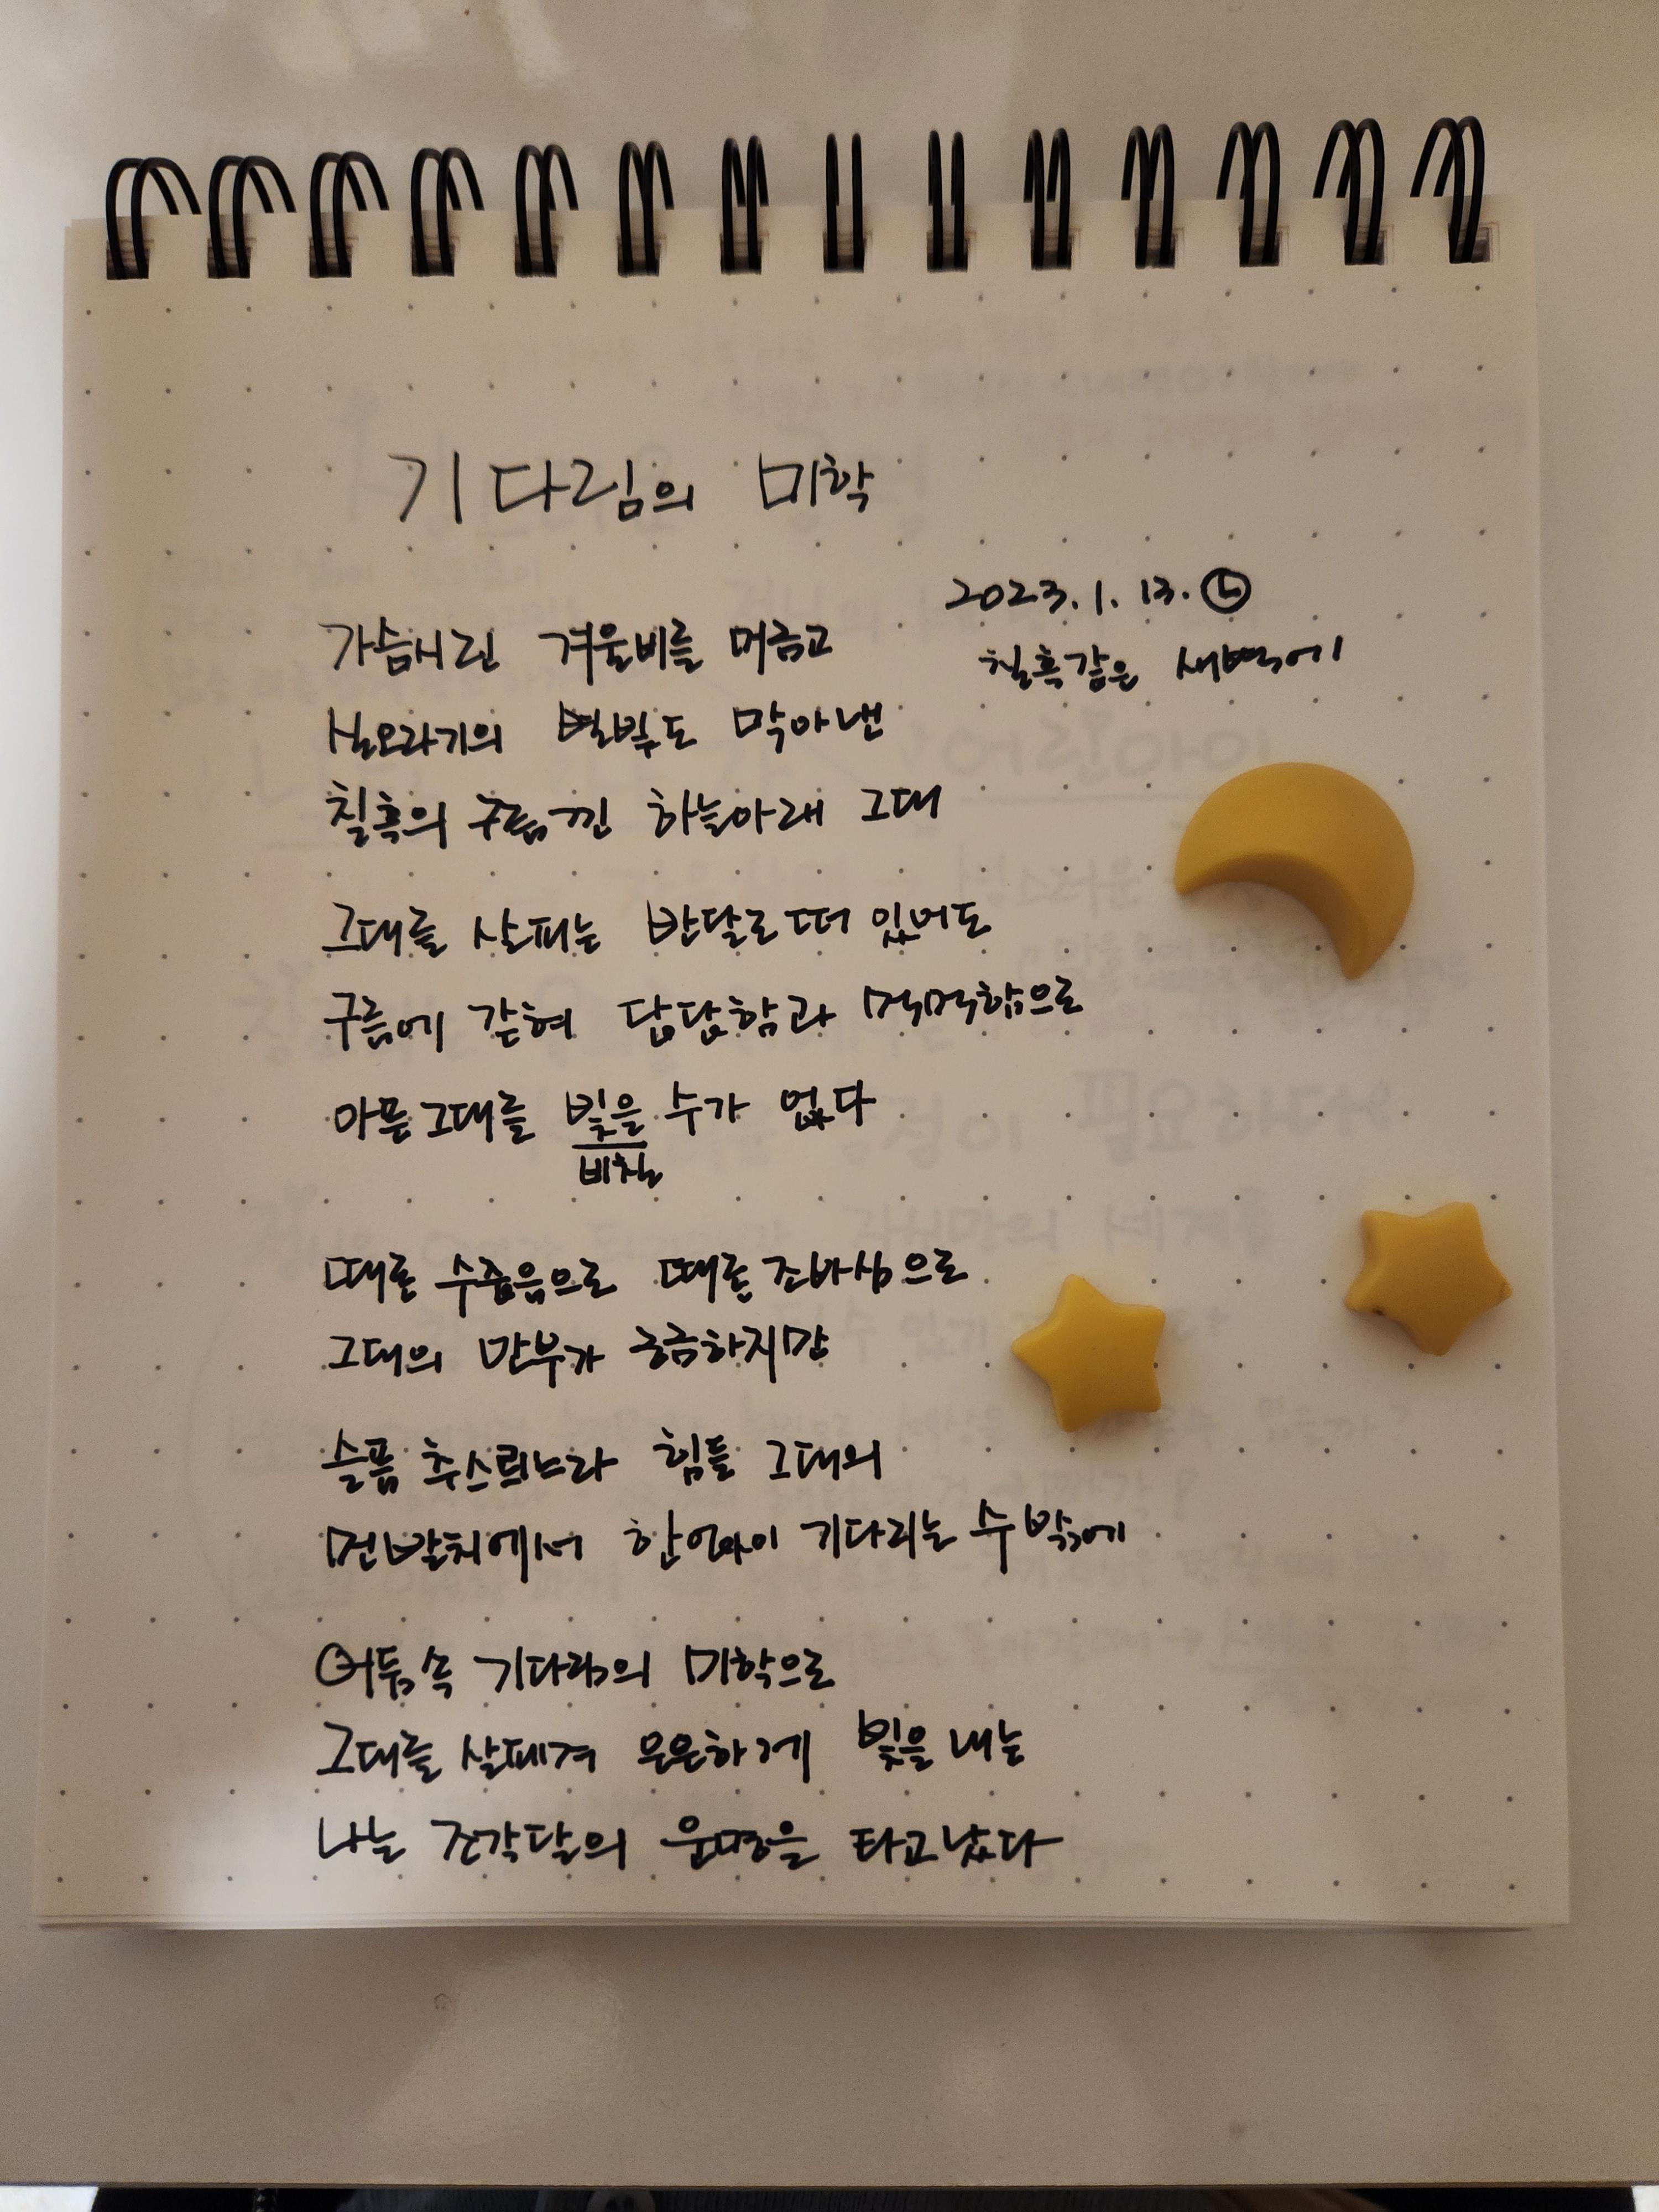 기다림의 미학
2023.1.13.
칠흑같은 새벽에
가슴시린 겨울비를 머금고
실오라기의 별빛도 막아낸
칠흑의 구름낀 하늘아래 그대
그대를 살피는 반달로 떠 있어도
구름에 갇혀 답답함과 먹먹함으로
아픈 그대를 빛을 수가 없다
비칠
때론 수줍음으로 때론 조바심으로
그대의 안부가 궁금하지만
슬픔 추스리느라 힘들 그대의
먼발치에서 한없이 기다리는 수밖에
어둠속 기다림의 미학으로
그대를 살펴가 은은하게 빛을 내는
나는 조각달의 운명을 타고났다